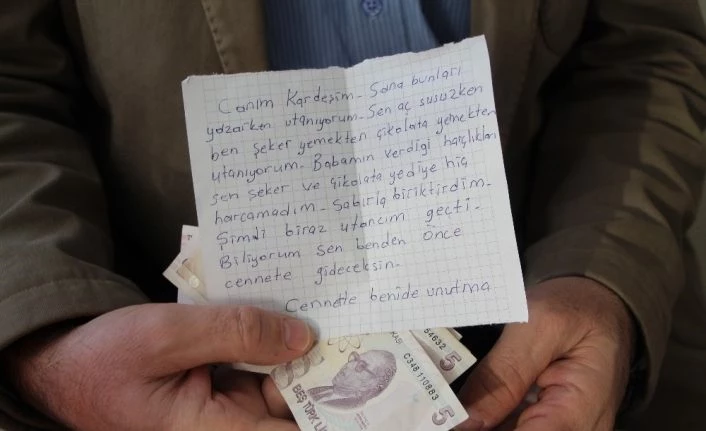 Canım Kardeşim. Sana bunları
yazarken utanıyorum. Sen aç susuzken
ben şeker yemekten çikolata yemekten
utanıyorum. Babamın verdiği harçlıkları
sen şeker ve çikolata yediye hiç
harcamadım. Sabırla biriktirdim.
Şimdi biraz utancım geçti.
Biliyorum sen benden önce
cennete gideceksin.
Cennette benide unutma
54632
5
C348110883
BEŞ TÜRK Lİ
5